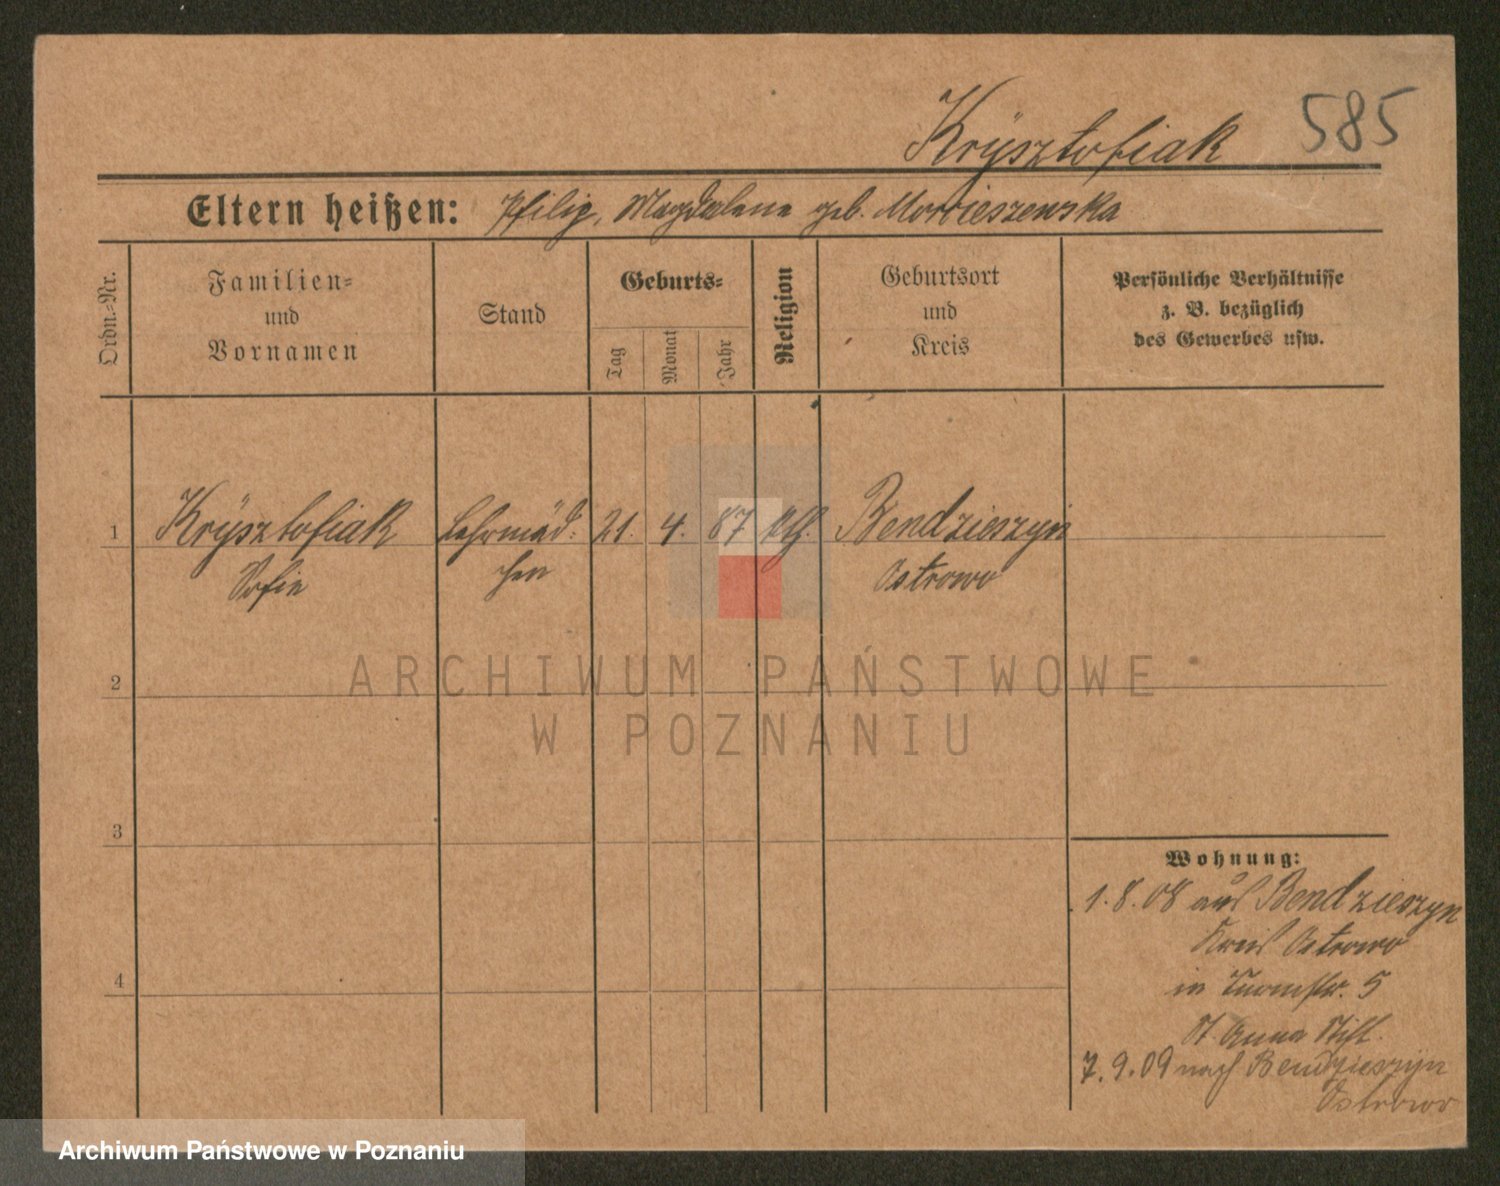 Krÿsztofiak 585
Eltern heißen: Philip, Magdalena geb.
Ordn.-Nr.
Familien-
und
Vornamen
Stand
Geburts-
Tag
Monat
Jahr
Religion
Geburtsort
und
Kreis
Persönliche Verhältnisse
z. B. bezüglich
des Gewerbes usw.
1 Krÿsztofiak Lehrmäd- 21. 4. 87 kth. Bendzieszyn
Sofie chen Ostrowo
ARCHIWUM PAŃSTWOWE
W POZNANIU
2
3
4
Wohnung:
1.8.08 aus Bendzieszyn
Kreis Ostrowo
in Turmstr. 5
St. Anna Stift.
7.9.09 nach Bendzieszyn
Ostrowo
Archiwum Państwowe w Poznaniu